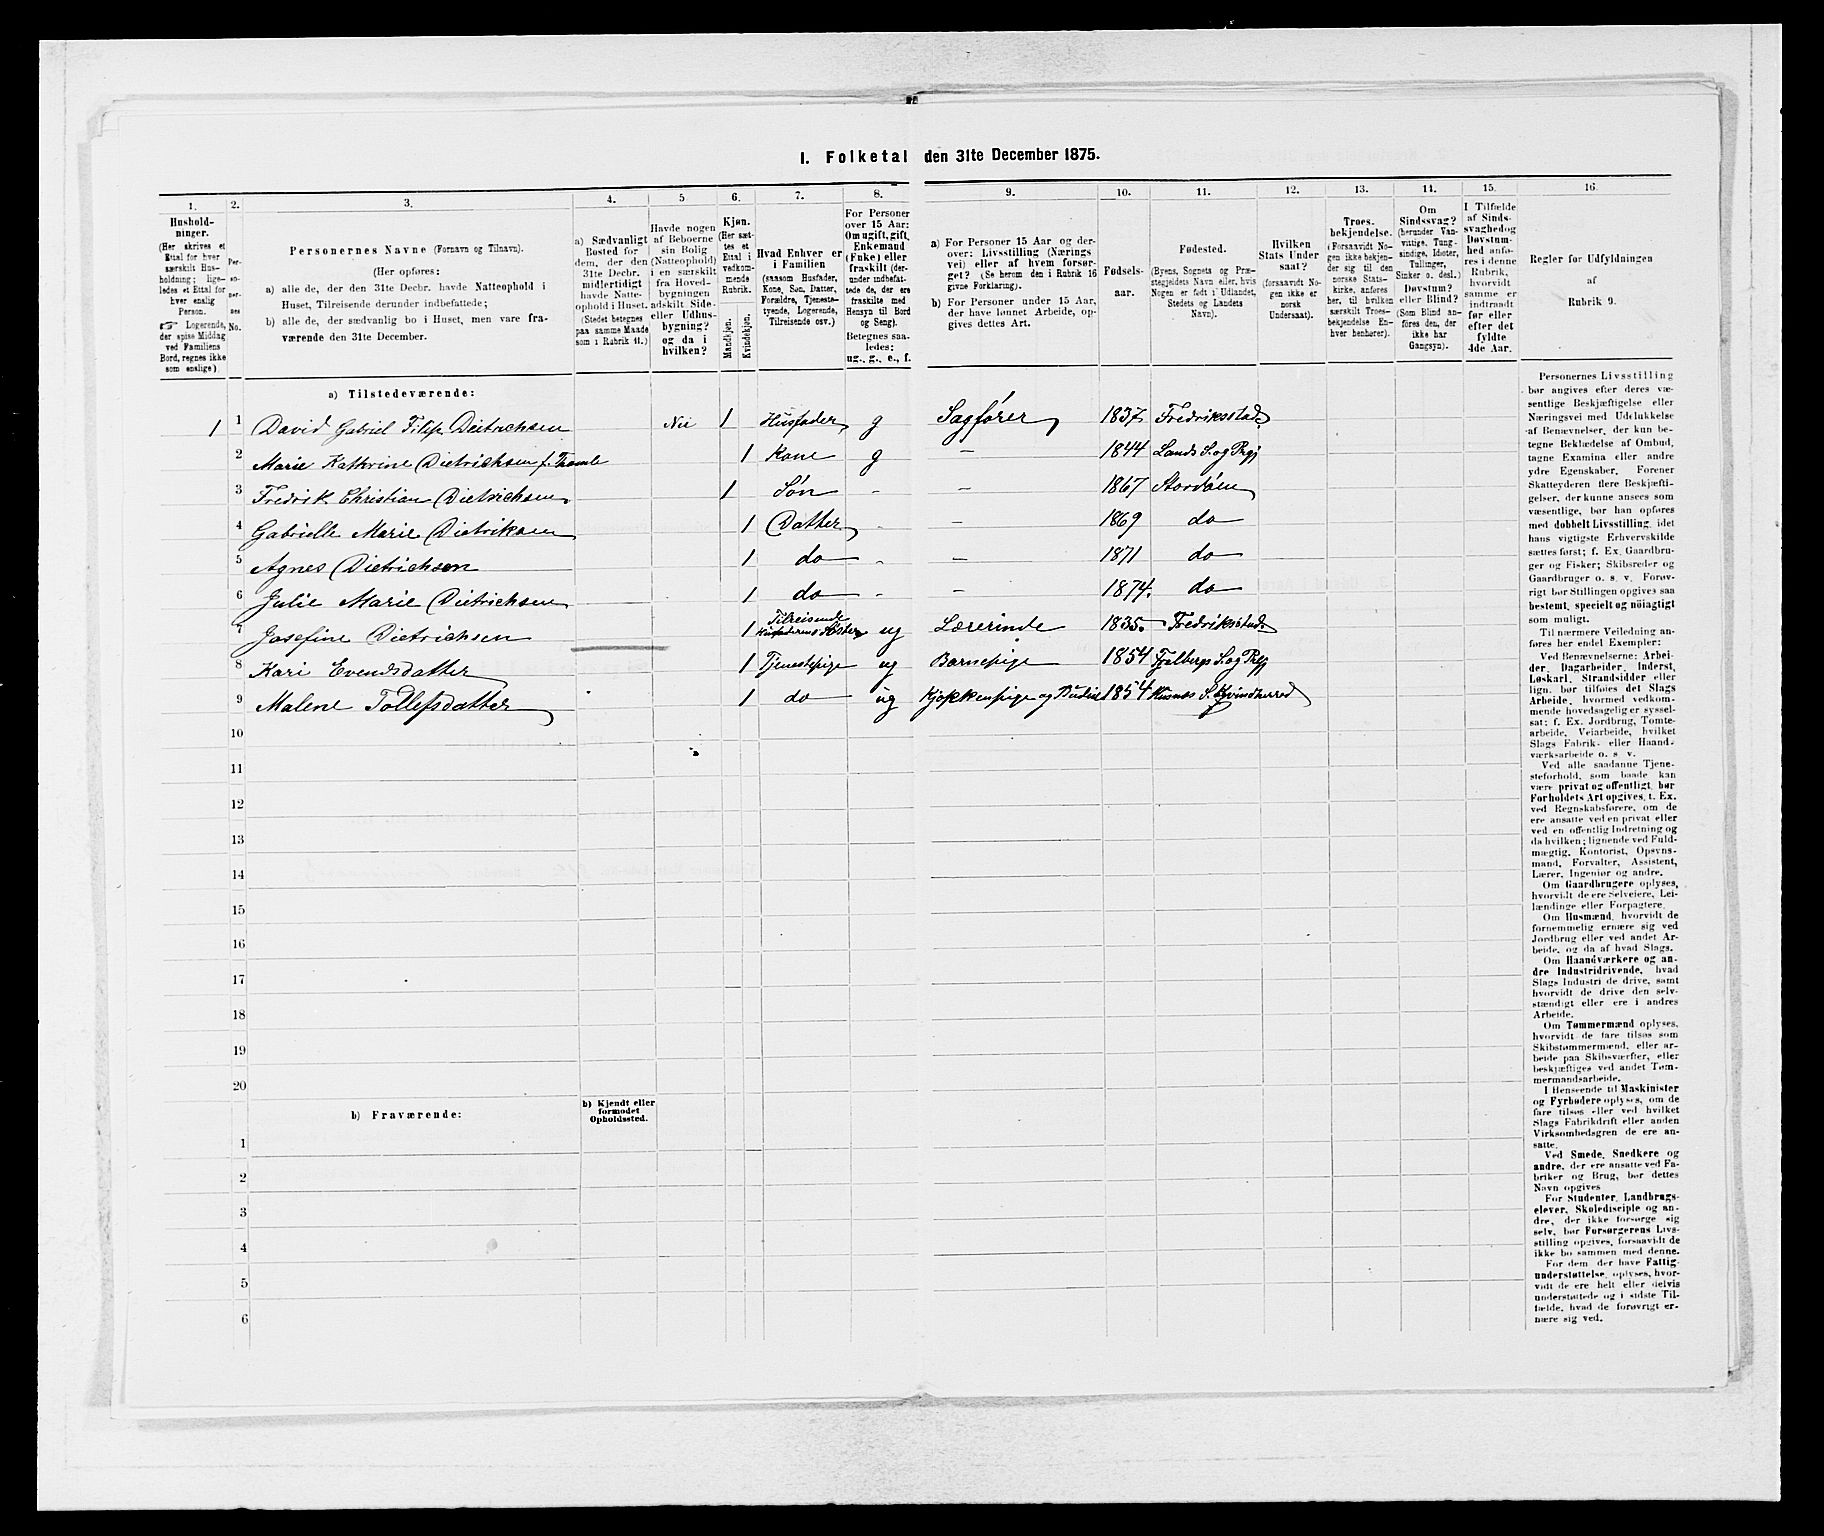 I. Folketal den 31te December 1875.
1. 2. 3. 4. 5 6. 7. 8. 9. 10. 11. 12. 13. 14. 15. 16.
Husholdninger.
(Her skrives et Ettal for hver særskilt Husholdning; ligeledes et Ettal for hver enslig Person.
☞ Logerende, der spise Middag ved Familiens Bord, regnes ikke som enslige).
Personernes No.
Personernes Navne (Fornavn og Tilnavn).
(Her opføres:
a) alle de, der den 31te Decbr. havde Natteophold i Huset, Tilreisende derunder indbefattede;
b) alle de, der sædvanlig bo i Huset, men vare fraværende den 31te December.
a) Sædvanligt Bosted for dem, der den 31te Decbr. midlertidigt havde Natteophold i Huset. (Stedet betegnes paa samme Maade som i Rubrik 11.)
Havde nogen af Beboerne sin Bolig (Natteophold) i en særskilt fra Hovedbygningen adskilt Side- eller Udhusbygning? og da i hvilken?
Kjøn. (Her sættes et Ettal i vedkommende Rubrik.
Mandkjøn. Kvindekjøn.
Hvad Enhver er i Familien (saasom Husfader, Kone, Søn, Datter, Forældre, Tjenestetyende, Logerende, Tilreisende osv.)
For Personer over 15 Aar: Om ugift, gift, Enkemand (Enke) eller fraskilt (derunder indbefattede de, der ere fraskilte med Hensyn til Bord og Seng). Betegnes saaledes: ug., g., e., f.
a) For Personer 15 Aar og derover: Livsstilling (Næringsvei) eller af hvem forsørget? (Se herom den i Rubrik 16 givne Forklaring).
b) For Personer under 15 Aar, der have lønnet Arbeide, opgives dettes Art.
Fødselsaar.
Fødested. (Byens, Sognets og Præstegjeldets Navn eller, hvis Nogen er født i Udlandet, Stedets og Landets Navn).
Hvilken Stats Undersaat? (forsaavidt Nogen ikke er norsk Undersaat).
Troesbekjendelse. (Forsaavidt Nogen ikke bekjender sig til den norske Statskirke, anføres her, til hvilken særskilt Troesbekjendelse Enhver henhører).
Om Sindssvag? (herunder Vanvittige, Tungsindige, Idioter, Tullinger, Sinker o. desl.) Døvstum? eller Blind? (Som Blind anføres den, der ikke har Gangsyn).
I Tilfælde af Sindssvaghed og Døvstumhed anføres i denne Rubrik, hvorvidt samme er indtraadt før eller efter det fyldte 4de Aar.
Regler for Udfyldningen af Rubrik 9.
a) Tilstedeværende:
1 1 David Gabriel Filip Deitrichsen Nei 1 Husfader g Sagfører 1837. Fredriksstad
2 Marie Kathrine Dietrichsen f. 1 Kone g - 1844 Lands S. og Prgj
3 Fredrik Christian Dietrichsen 1 Søn - - 1867 Stordøen
4 Gabrielle Marie Dietriksen 1 Datter - - 1869 do
5 Agnes Dietrichsen 1 do - - 1871 do
6 Julie Marie Dietrichsen 1 do - - 1874. do
7 Josefine Dietrichsen 1 Tilreisende Husfaderens Søster ug Lærerinde 1835. Fredriksstad.
8 Kari Evendsdatter 1 Tjenestepige ug Barnepige 1854 Fjelbergs S. og Prgj
9 Malene Tollefsdatter 1 do ug Kjøkkenpige og Budeie 1854 Husnæs S. Kvindherred
10
11
12
13
14
15
16
17
18
19
20
b) Fraværende:
b) Kjendt eller formodet Opholdssted.
1
2
3
4
5
6
Personernes Livsstilling
bør angives efter deres væ-
sentlige Beskjæftigelse eller
Næringsvei med Udelukkelse
af Benævnelser, der kun be-
tegne Beklædelse af Ombud,
tagne Examina eller andre
ydre Egenskaber. Forener
Skatteyderen flere Beskjæfti-
gelser, der kunne ansees som
væsentlige, bør han opføres
med dobbelt Livsstilling, idet
hans vigtigste Erhvervskilde
sættes først; f. Ex. Gaardbru-
ger og Fisker; Skibsreder og
Gaardbruger o. s. v. Forøv-
rigt bør Stillingen opgives saa
bestemt, specielt og nöiagtigt
som muligt.
Til nærmere Veiledning an-
føres her endel Exempler:
Ved Benævnelserne: Arbei-
der, Dagarbeider, Inderst,
Løskarl, Strandsidder eller
lign. bør tilføies det Slags
Arbeide, hvormed vedkom-
mende hovedsagelig er syssel-
sat; f. Ex. Jordbrug, Tomte-
arbeide, Veiarbeide, hvilket
Slags Fabrik- eller Haand-
værksarbeide o. s. v.
Ved alle saadanne Tjene-
steforhold, som baade kan
være privat og offentligt, bør
Forholdets Art opgives, t. Ex.
ved Regnskabsførere, om de
ere ansatte ved en privat eller
ved en offentlig Indretning og
da hvilken; lignende ved Fuld-
mægtig, Kontorist, Opsyns-
mand, Forvalter, Assistent,
Lærer, Ingeniør og andre.
Om Gaardbrugere oplyses,
hvorvidt de ere Selveiere, Lei-
lændinge eller Forpagtere.
Om Husmænd, hvorvidt de
fornemmelig ernære sig ved
Jordbrug eller ved andet Ar-
beide, og da af hvad Slags.
Om Haandværkere og an-
dre Industridrivende, hvad
Slags Industri de drive, samt
hvorvidt de drive den selv-
stændigt eller ere i andres
Arbeide.
Om Tømmermænd oplyses,
hvorvidt de fare tilsøs som
Skibstømmermænd, eller ar-
beide paa Skibsværfter, eller
beskjæftiges ved andet Tøm-
mermandsarbeide.
I Henseende til Maskinister
og Fyrbødere oplyses, om de
fare tilsøs eller ved hvilket
Slags Fabrikdrift eller anden
Virksomhedsgren de ere an-
satte.
Ved Smede, Snedkere og
andre, der ere ansatte ved Fa-
briker og Brug, bør dettes
Navn opgives
For Studenter, Landbrugs-
elever, Skoledisciple og an-
dre, der ikke forsørge sig
selv, bør Forsørgerens Livs-
stilling opgives, forsaavidt de
ikke bo sammen med denne.
For dem, der have Fattig-
understøttelse, oplyses, hvor-
vidt de ere helt eller delvis
understøttede og i sidste Til-
fælde, hvad de forøvrigt er-
nære sig ved.